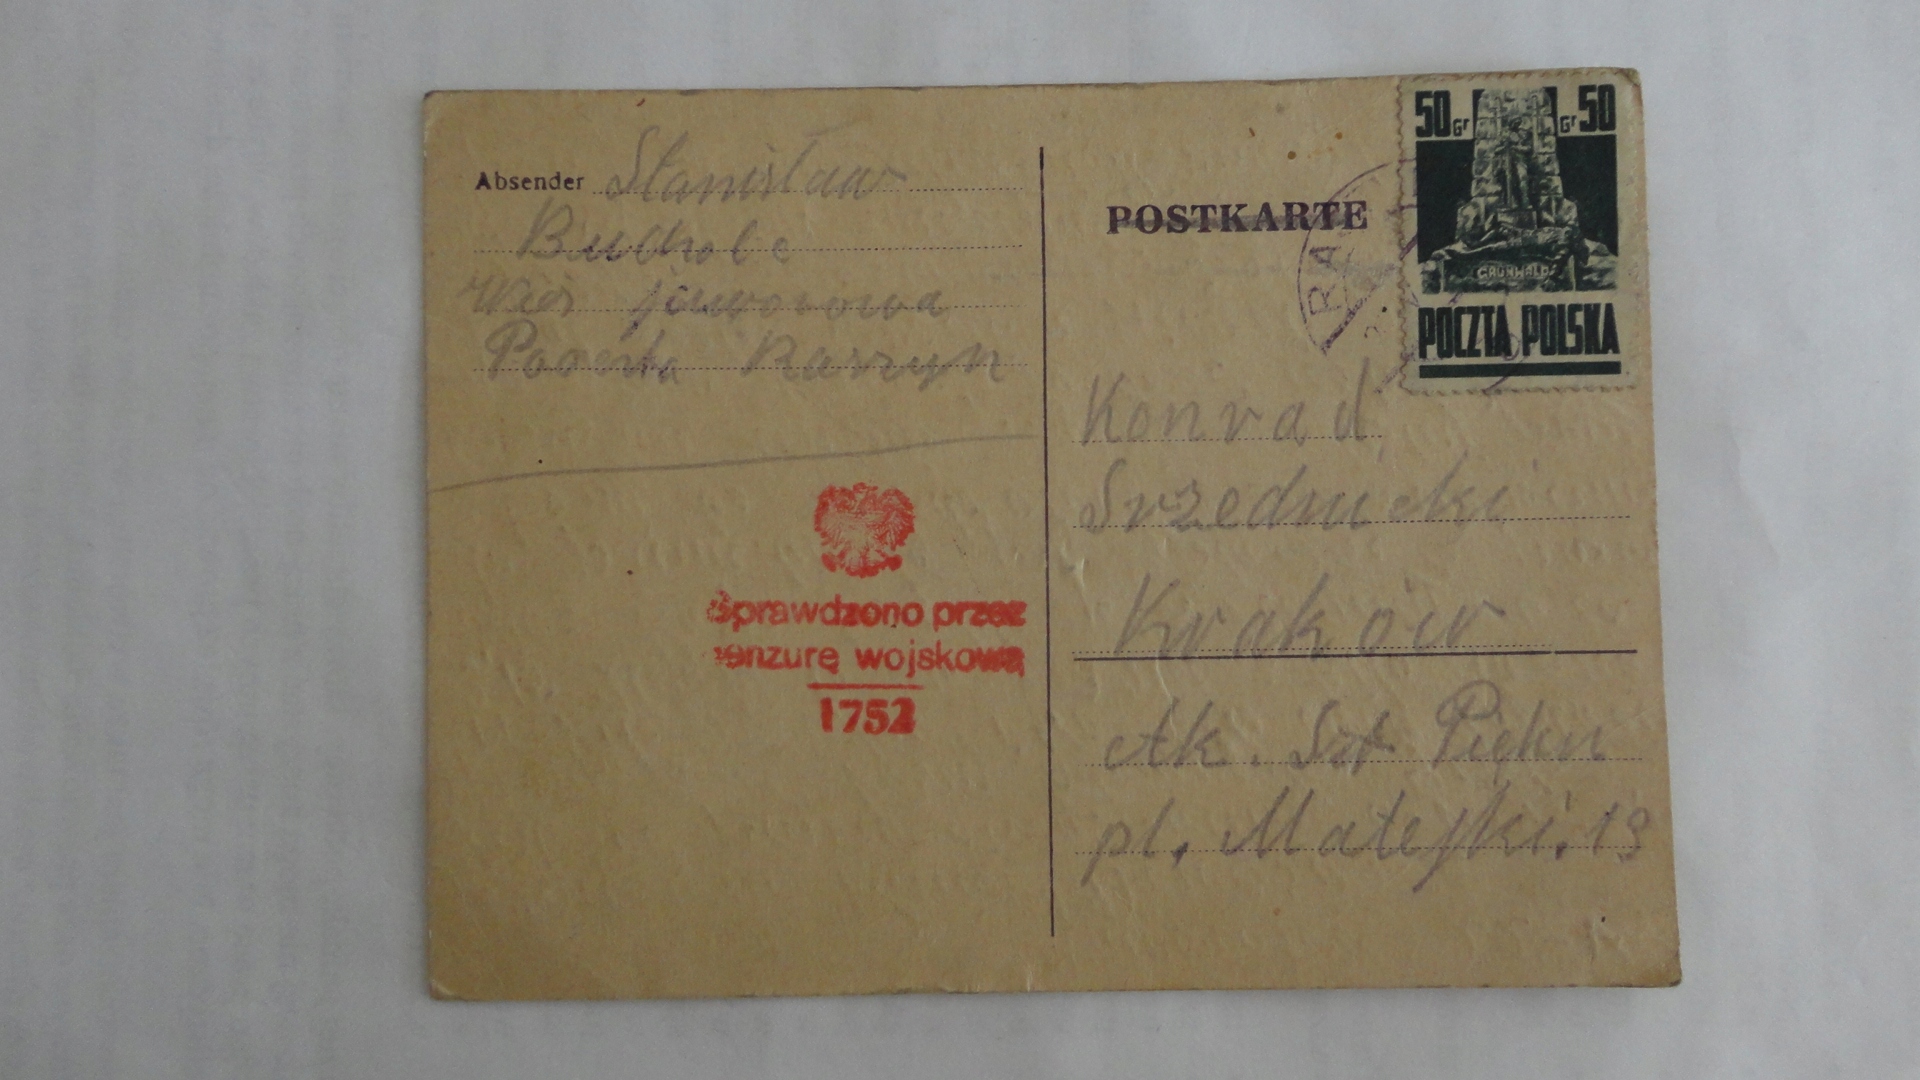 Absender Stanisław
Bucholc
Wieś Jaworowa
Poczta Raszyn
Sprawdzono przez
cenzurę wojskową
1752
POSTKARTE
50 Gr Gr 50
GRUNWALD
POCZTA POLSKA
RA
Konrad
Srzednicki
Kraków
Ak. Szt Piękn
pl. Matejki. 13